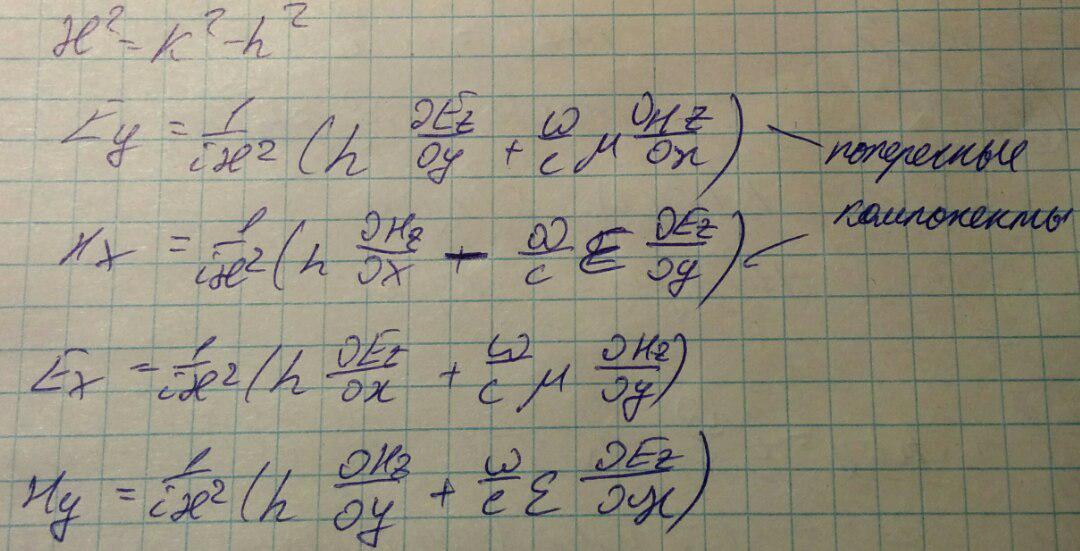 ӕ² = k² - h²
Ey = 1/(iӕ²) (h ∂Ez/∂y + ω/c μ ∂Hz/∂x) поперечные
компоненты
Hx = 1/(iӕ²) (h ∂Hz/∂x - ω/c ε ∂Ez/∂y)
Ex = 1/(iӕ²) (h ∂Ez/∂x + ω/c μ ∂Hz/∂y)
Hy = 1/(iӕ²) (h ∂Hz/∂y + ω/c ε ∂Ez/∂x)